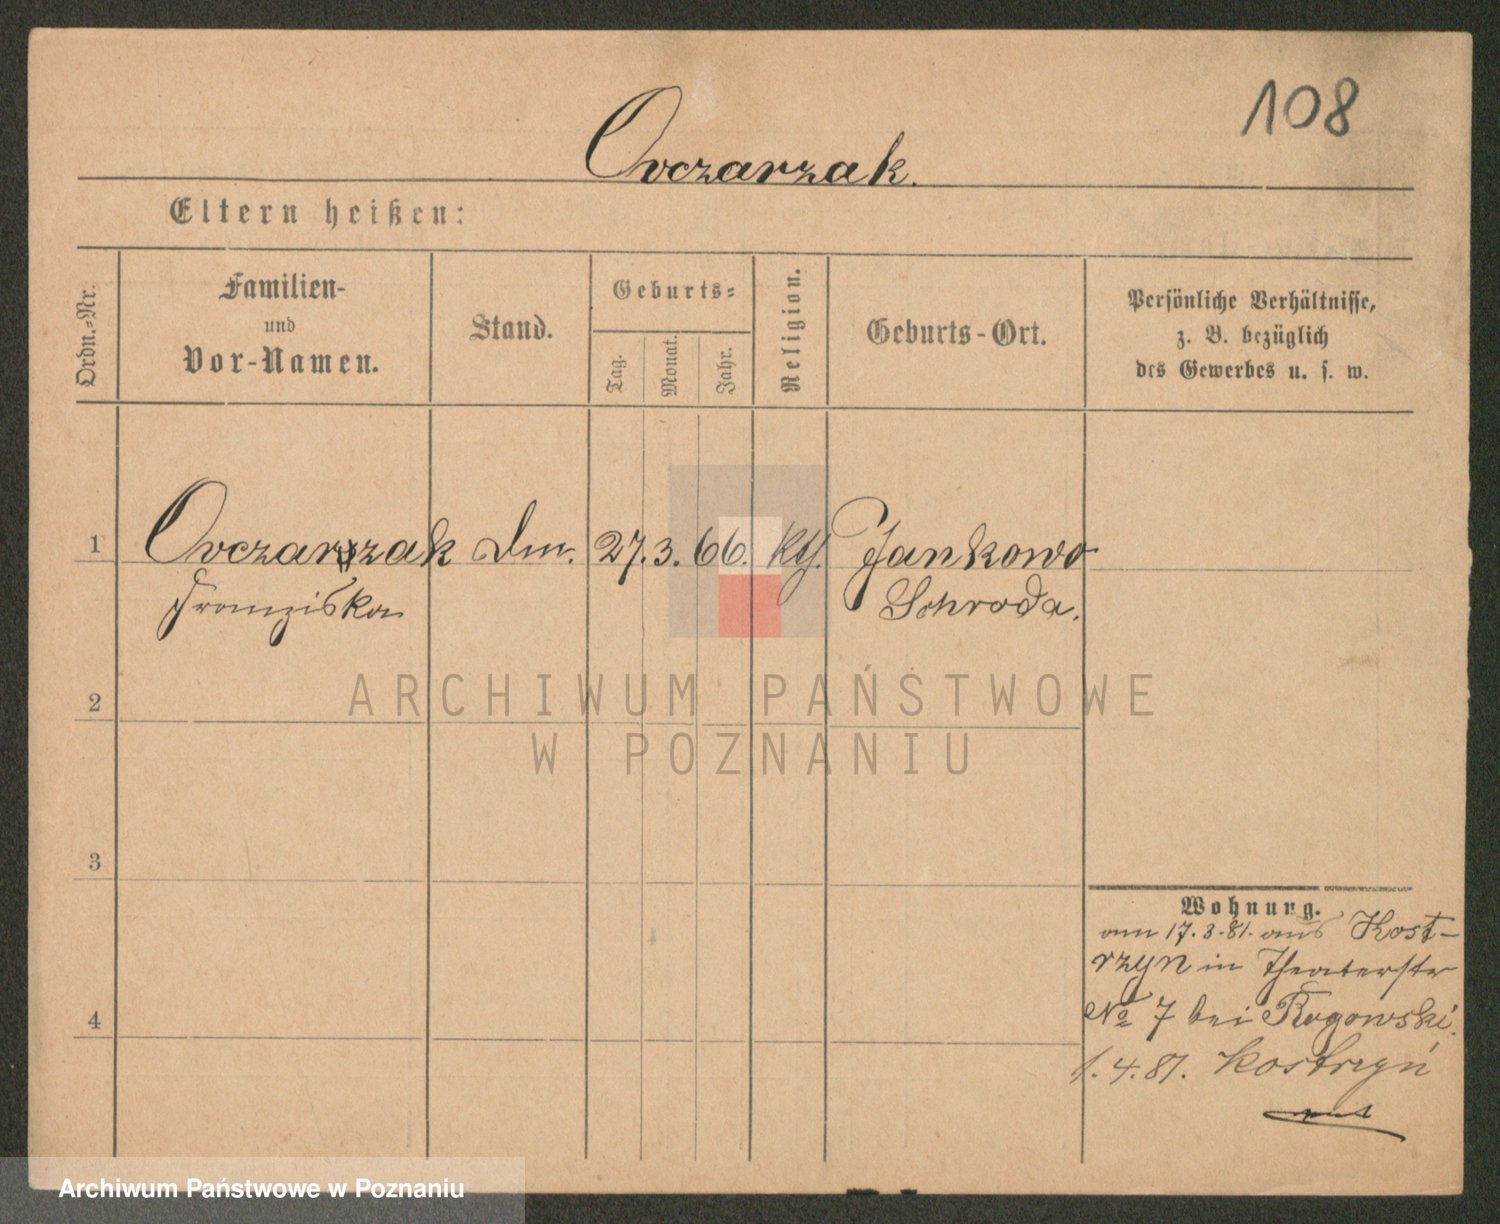 108
Ovczarzak.
Eltern heißen:
Ordn.=Nr.
Familien-
und
Vor-Namen.
Stand.
Geburts=
Tag.
Monat.
Jahr.
Religion.
Geburts-Ort.
Persönliche Verhältnisse,
z. B. bezüglich
des Gewerbes u. s. w.
1 Ovczarzak Dm. 27. 3. 66. kth. Jankowo
Franziska Schroda.
ARCHIWUM PAŃSTWOWE
W POZNANIU
2
3
4
Wohnung.
am 17.3.81. aus Kost-
rzyn in Theaterstr
No 7 bei Rogowski.
1.4.81. Kostrzyń
Archiwum Państwowe w Poznaniu